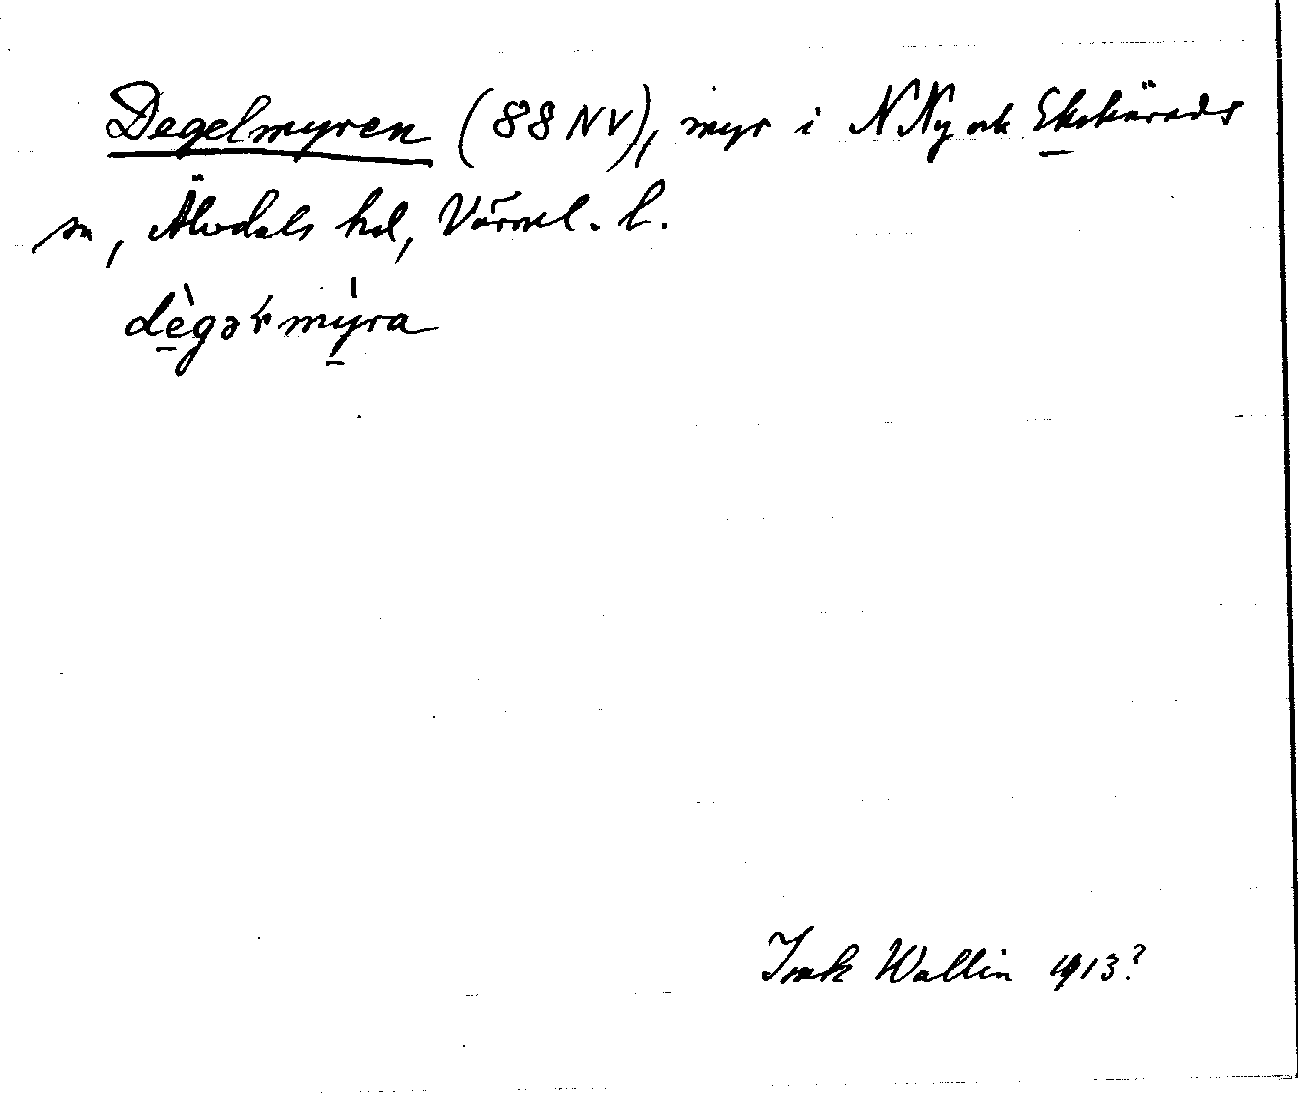 Degelmyren (88 NV), myr i N Ny och Ekshärads
sn, Älvdals hd, Värml. l.
dègəɽmỳra
Isak Wallin 1913?